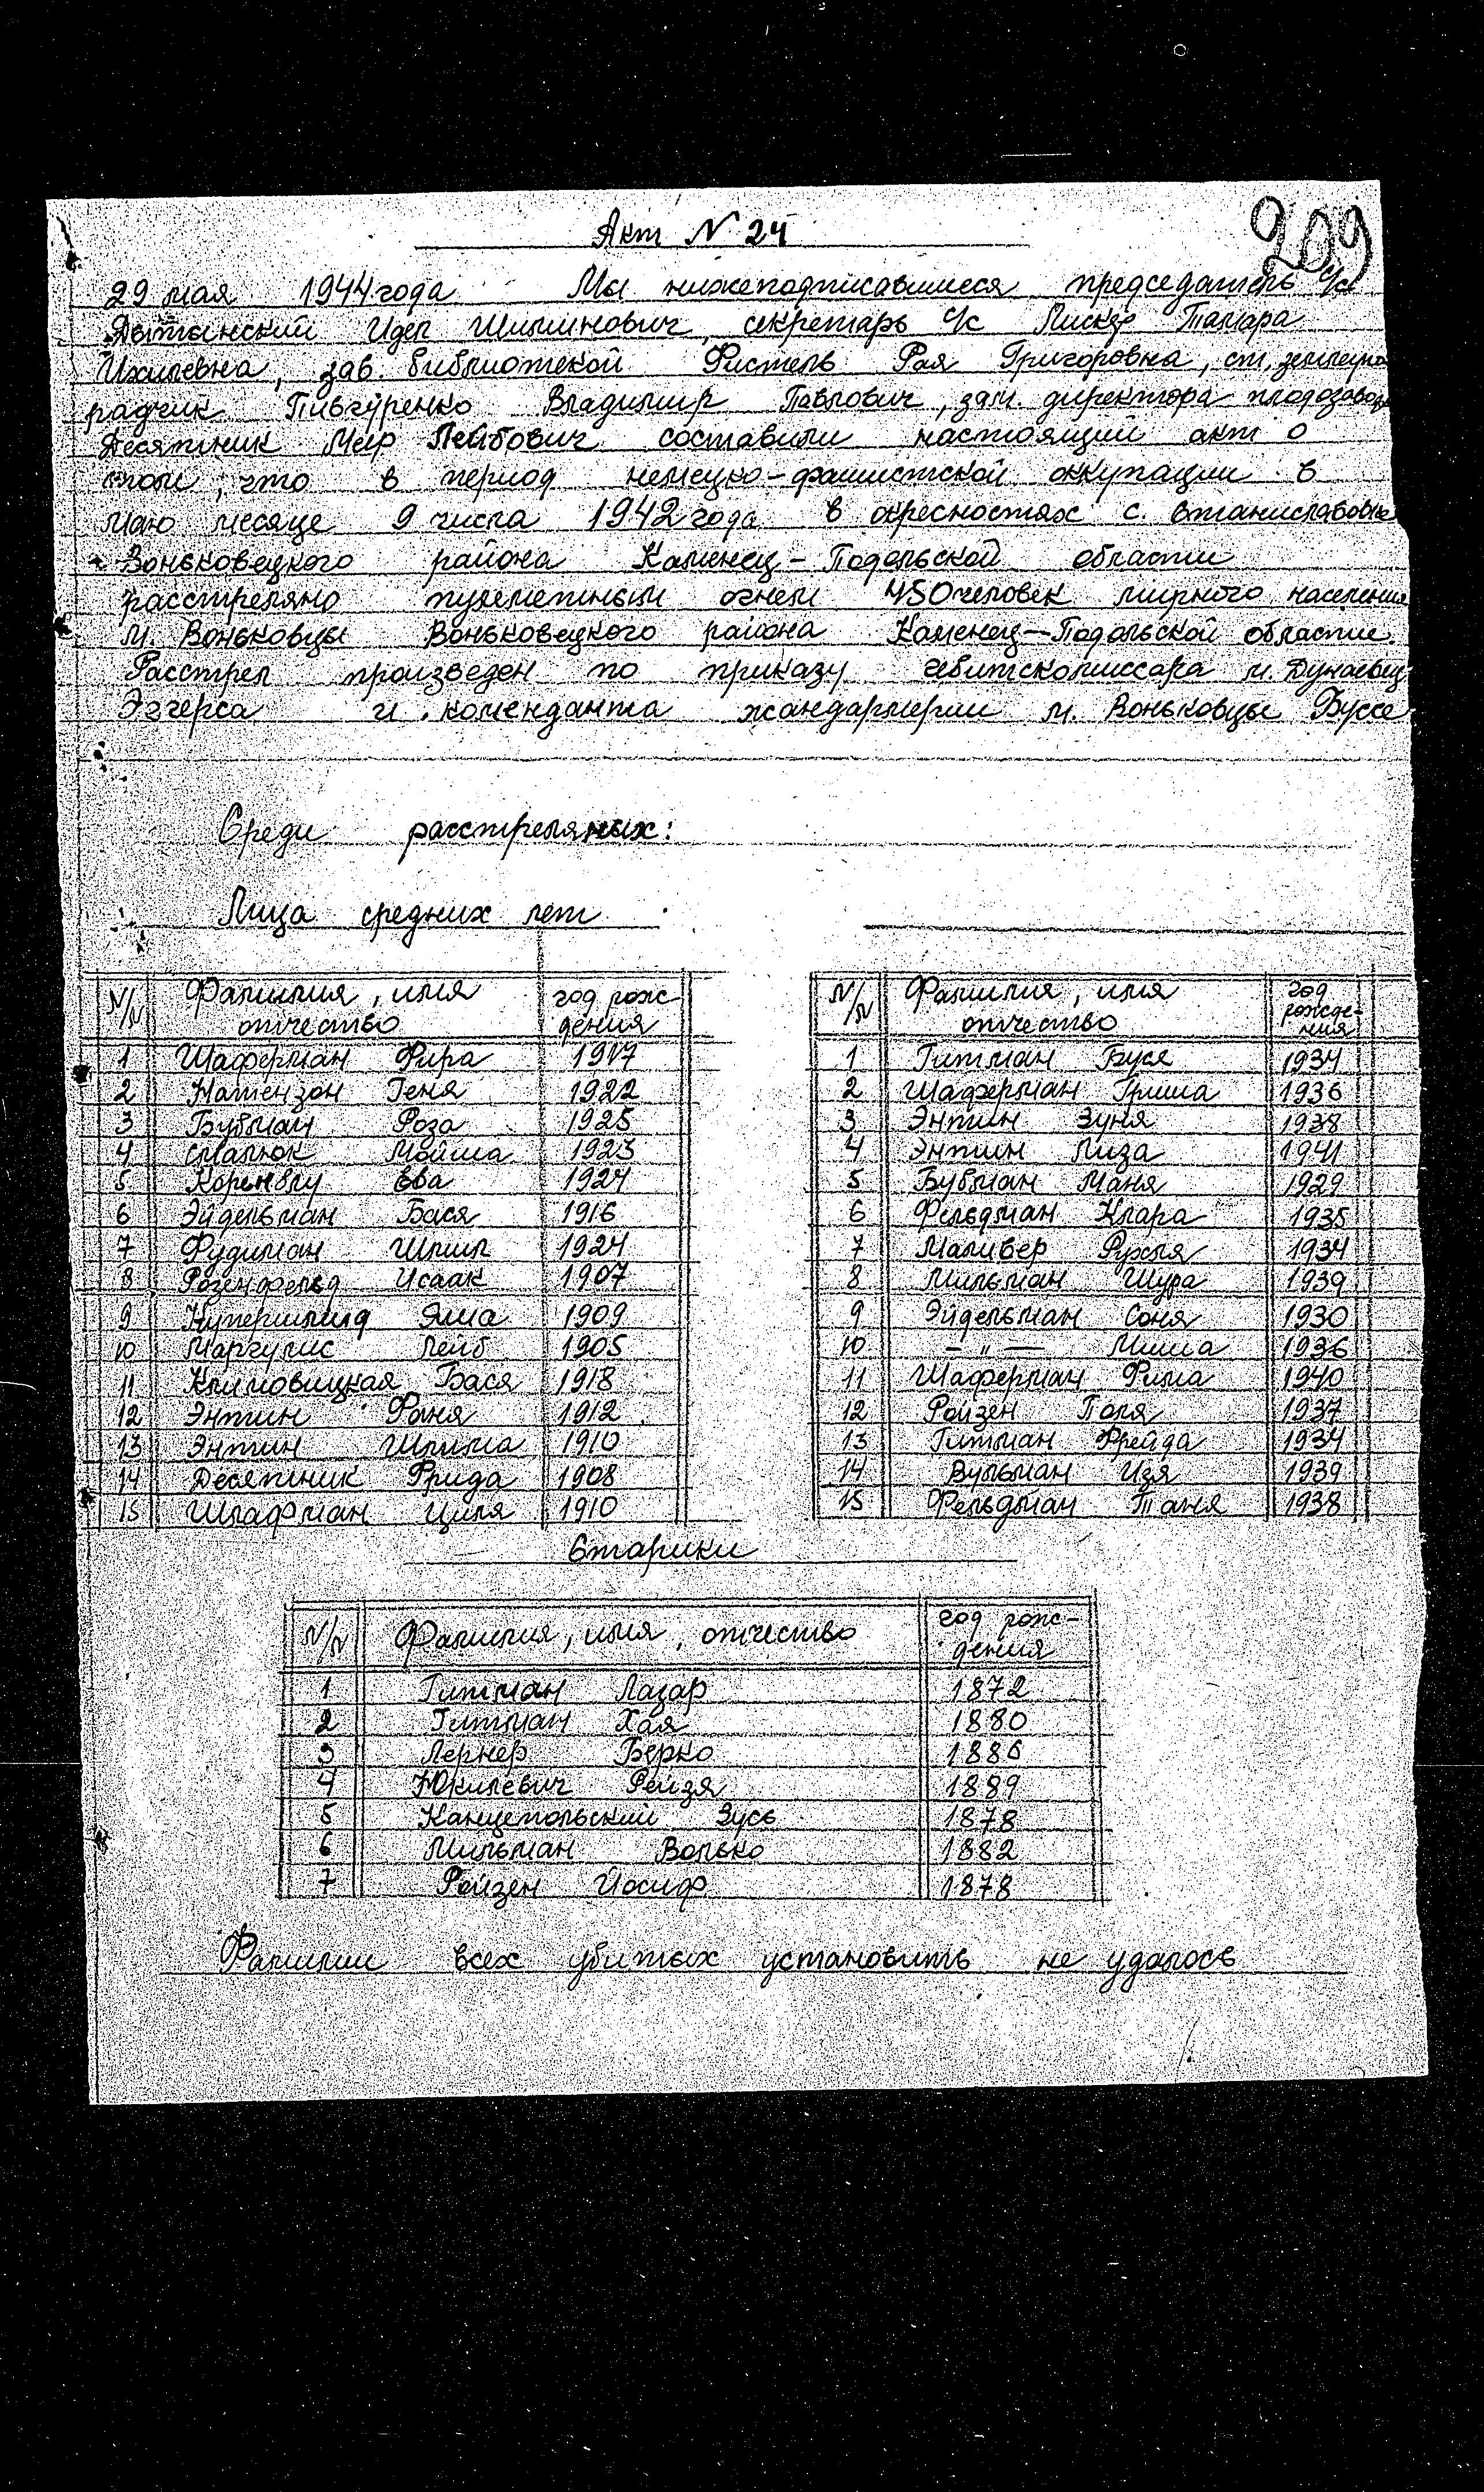 209
Акт N 24
29 мая 1944 года Мы нижеподписавшиеся председатель с/с
Идел Шлиминович, секретарь с/с Пискер Тамара
Ихилевна, зав. библиотекой Фистель Рая Григоровна, ст. землеупо
радчик Пивгуренко Владимир Павлович, зам. директора плодозавода
Десятник Меер Лейбович составили настоящий акт о
том, что в период немецко-фашистской оккупации в
маю месяце 9 числа 1942 года в окресностях с. Станиславовка
Воньковецкого района Каменец-Подольской области
расстреляно пулеметным огнем 450 человек мирного населения
м. Воньковцы Воньковецкого района Каменец-Подольской области
Расстрел произведен по приказу гебитскомиссара м. Дунаевцы
Эггерса и коменданта жандармерии м. Воньковцы Буссе
Среди расстреляных:
Лица средних лет
N/N Фамилия, имя отчество год рождения
1 Шаферман Фира 1917
2 Натензон Геня 1922
3 Бубман Роза 1925
4 Смалюк Мойша 1923
5 Коренвлу Ева 1924
6 Эйдельман Бася 1916
7 Фудиман Шлим 1924
8 Розенфельд Исаак 1907
9 Купершмид Яша 1909
10 Маргулис Лейб 1905
11 Климовицкая Бася 1918
12 Энтин Фаня 1912
13 Энтин Шлима 1910
14 Десятник Фрида 1908
15 Шлафман Циля 1910
N/N Фамилия, имя отчество год рождения
1 Гитман Буся 1934
2 Шаферман Гриша 1936
3 Энтин Зуня 1938
4 Энтин Лиза 1941
5 Бубман Маня 1929
6 Фельдман Клара 1935
7 Маливер Рухля 1934
8 Мильман Шура 1939
9 Эйдельман Соня 1930
10 — " — Миша 1936
11 Шаферман Фима 1940
12 Ройзен Поля 1937
13 Гитман Фрейда 1934
14 Вульман Изя 1939
15 Фельдман Таня 1938
Старики
N/N Фамилия, имя, отчество год рождения
1 Гитман Лазар 1872
2 Гитман Хая 1880
3 Лернер Берко 1886
4 Юкилевич Рейзя 1889
5 Канцепольский Зусь 1878
6 Мильман Волько 1882
7 Ройзен Иосиф 1878
Фамилии всех убитых установить не удалось